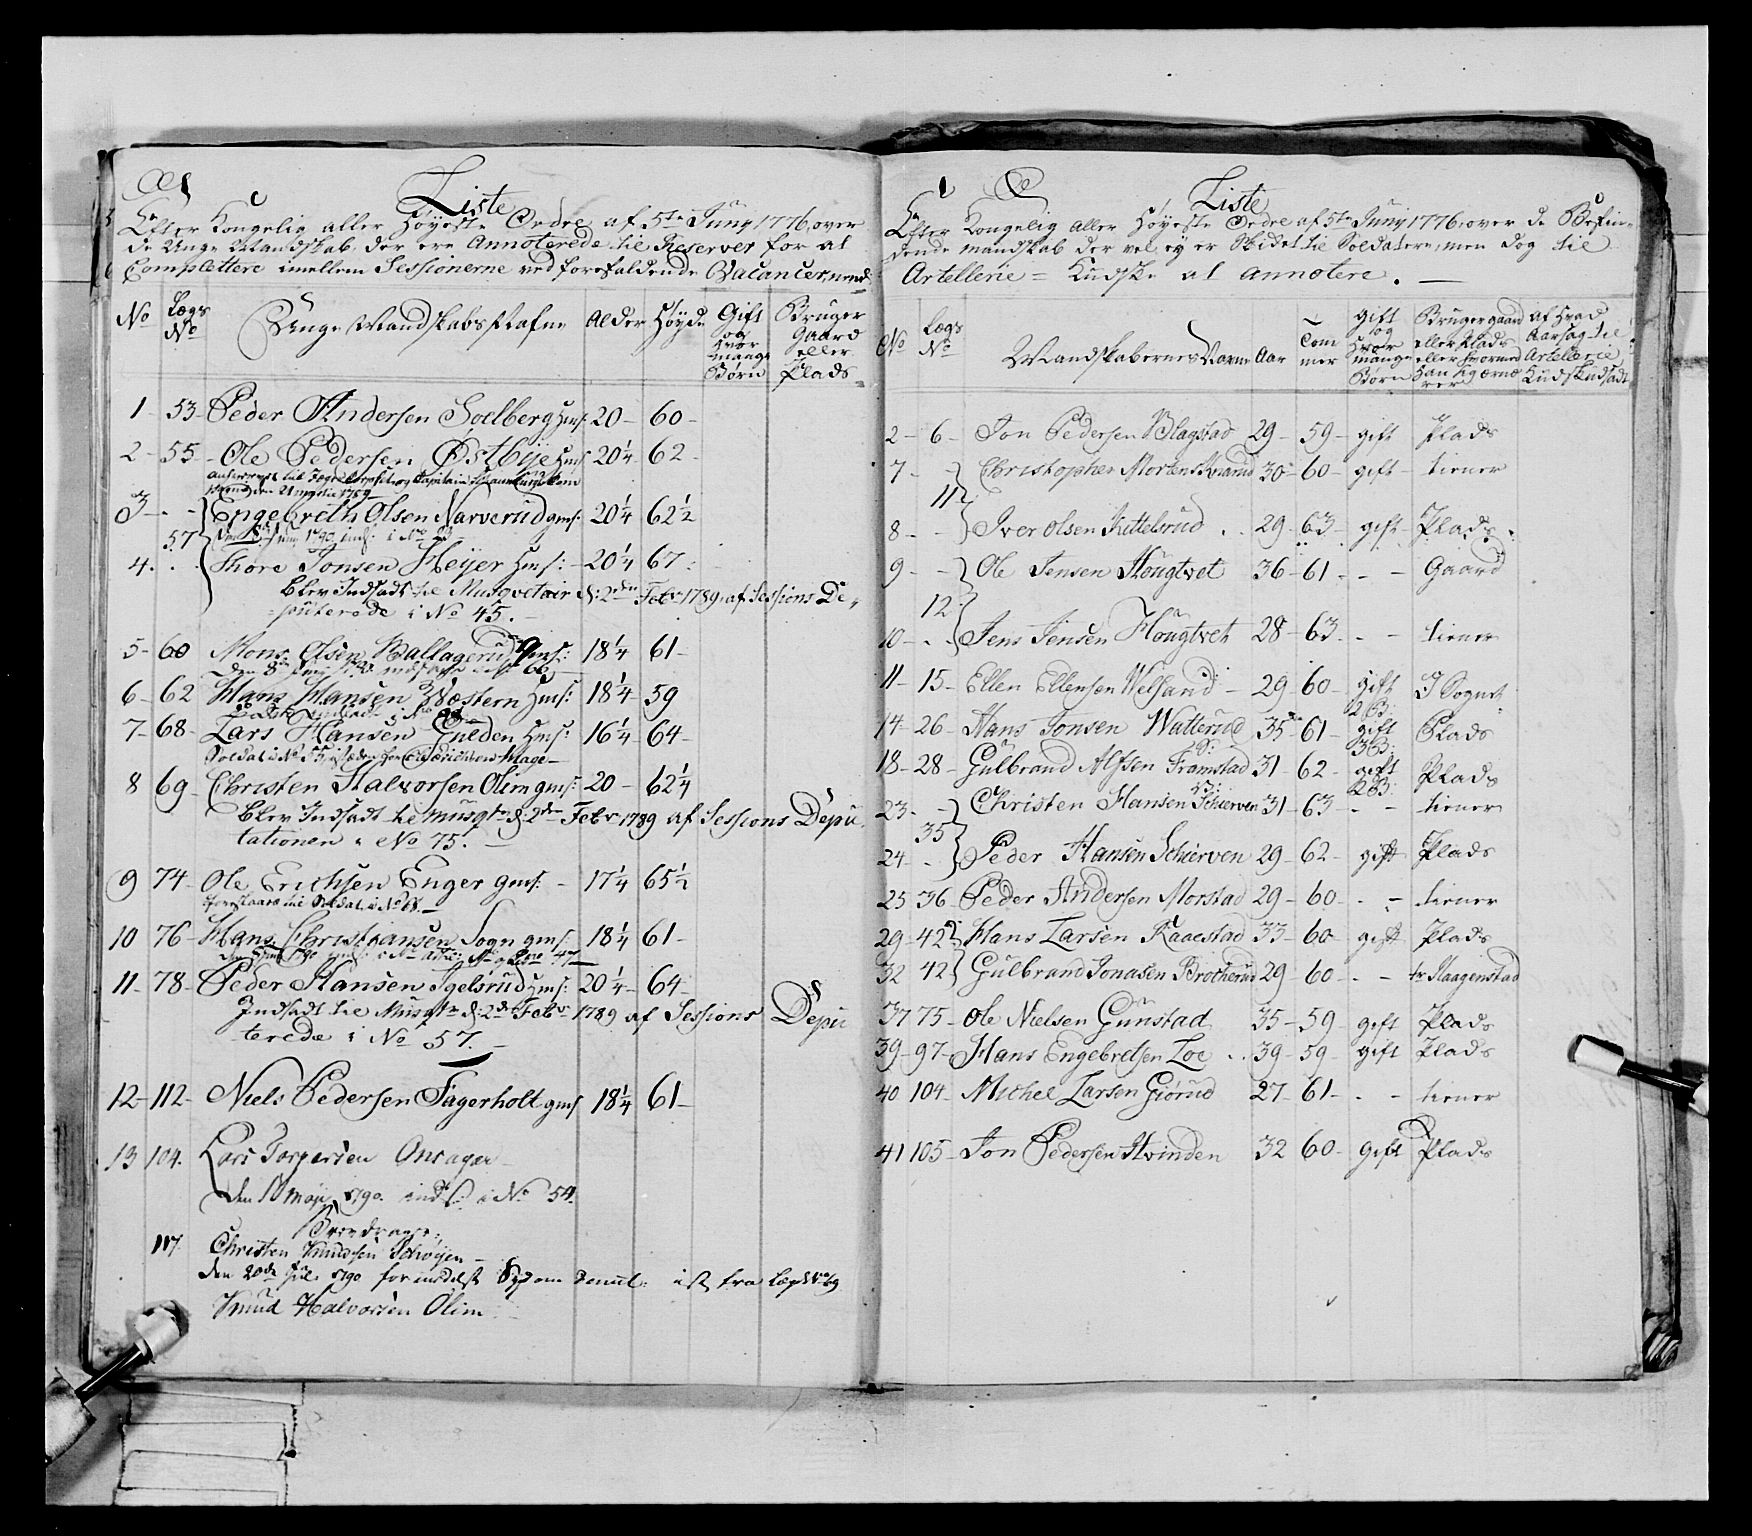 Liste
Efter Kongelig aller Høyeste Ordre af 5te Juny 1776, over
de Unge Mandskab der ere Annoterede til Reserver for at
Complettere imellem Sessionerne ved forefaldende Vacancer,
No Lægs No Unge Mandskabs Nafne Alder Høyde Gift og hvor mange Børn Bruger Gaard eller Plads
1 - 53 - Peder Andersen Soelberg Hmf: 20 - 60 -
2 - 55 - Ole Pedersen Østbye Hmf 20 1/4 62 -
3 - - Engebrith Olsen Narverud gmf: 20 1/4 62 1/2
57
4 . . Thore Jonsen Heyer Hmf: - 20 1/4 67 :
Blev Indsadt til Musqveteir d: 2den Febr 1789, af Sessions De-
puterede i No 45. -
5 - 60 Mons Olsen Ballagerud gmf: 18 1/4 61 -
6 - 62 Hans Hansen Wæstern Hmf: 18 1/4 59
7 - 68 - Lars Hansen Gulden Hmf: 16 1/4 64 -
8 69 - Christen Halvorsen Olim gmf: 20 - 62 1/4
Blev Indsadt til musqtr d: 2den Febr 1789 af Sessions Depu
tationen i No 75. -
9 74 - Ole Erichsen Enger gmf: - 17 1/4 65 1/2
10 76 - Hans Christiansen Sogn gmf: 18 1/4 61 -
11 - 78 - Peder Hansen Igelsrud Hmf: 20 1/4 - 64 -
Indsadt til Musqtr d: 2den Febr 1789 af Sessions Depu
terede i No 57. -
12 - 112 - Niels Pedersen Fagerholt gmf 18 1/4 61 -
13 104. Lars Torgersen Onsager
den 10 Maji 1790. inds: i No 54.
117. Christen Knudsen Schøyen -
den 20de Juli 1790 formedelst Sygdom ist fra Lægd No 69
Knud Halvorsen Olim
Liste
Efter Kongelig aller Høyeste Ordre af 5te Juny 1776, over de Befin-
dende mandskab der vel ey er Skidet til Soldater, men dog til
Artellerie = Kudske at annotere. -
No Lægs No Mandskabernes Navne Aar Tom mer gift og hvor mange Børn Bruger gaard eller Plads eller hvormed han sig ærnærer af Hvad Aarsag til Artellerie Kudsk Indsadt
2 - 6 - Jon Pedersen Blagstad 29 - 59 - gift Plads
7 - - Christopher Mortens Kvarud 30 - 60 - gift - tiener
11
8 - - Iver Olsen Kittelsrud . . 29 - 63 - gift - Plads .
9 - - Ole Jensen Hougtvet 36 - 61 - - - Gaard
12
10 - . . Jens Jensen Hougtvet 28 - 63 . - - tiener
11 - 15 - Ellen Ellensen Welsand - 29 - 60 - gift 2 B: I Sognet
14 - 26 - Hans Jonsen Watterud 35 - 61 - gift 3 B: Plads
18 - 28 - Gulbrand Alfsen Framstad 31 - 62 - gift 2 B: Plads
23 - - Christen Hansen Schierven 31 - 63 - . - tiener
35
24 - . Peder Hansen Schierven 29 - 62 - gift Plads
25 36 - Peder Andersen Morstad 29 - 60 - . - tiener
29 - 42 Hans Larsen Raaestad 33 - 60 - gift Plads
32 42 Gulbrand Jonasen Brotherud 29 - 60 - . - tr Haagenstad
37 75 - Ole Nielsen Gunstad 35 - 59 - gift Plads
39 - 97 - Hans Engebretsen Loe . . 39 - 59 - gift Plads
40 104 - Michel Larsen Giørud 27 - 61 - . - tiener
41 105 - Jon Pedersen Hvinden 32 60 - gift Plads